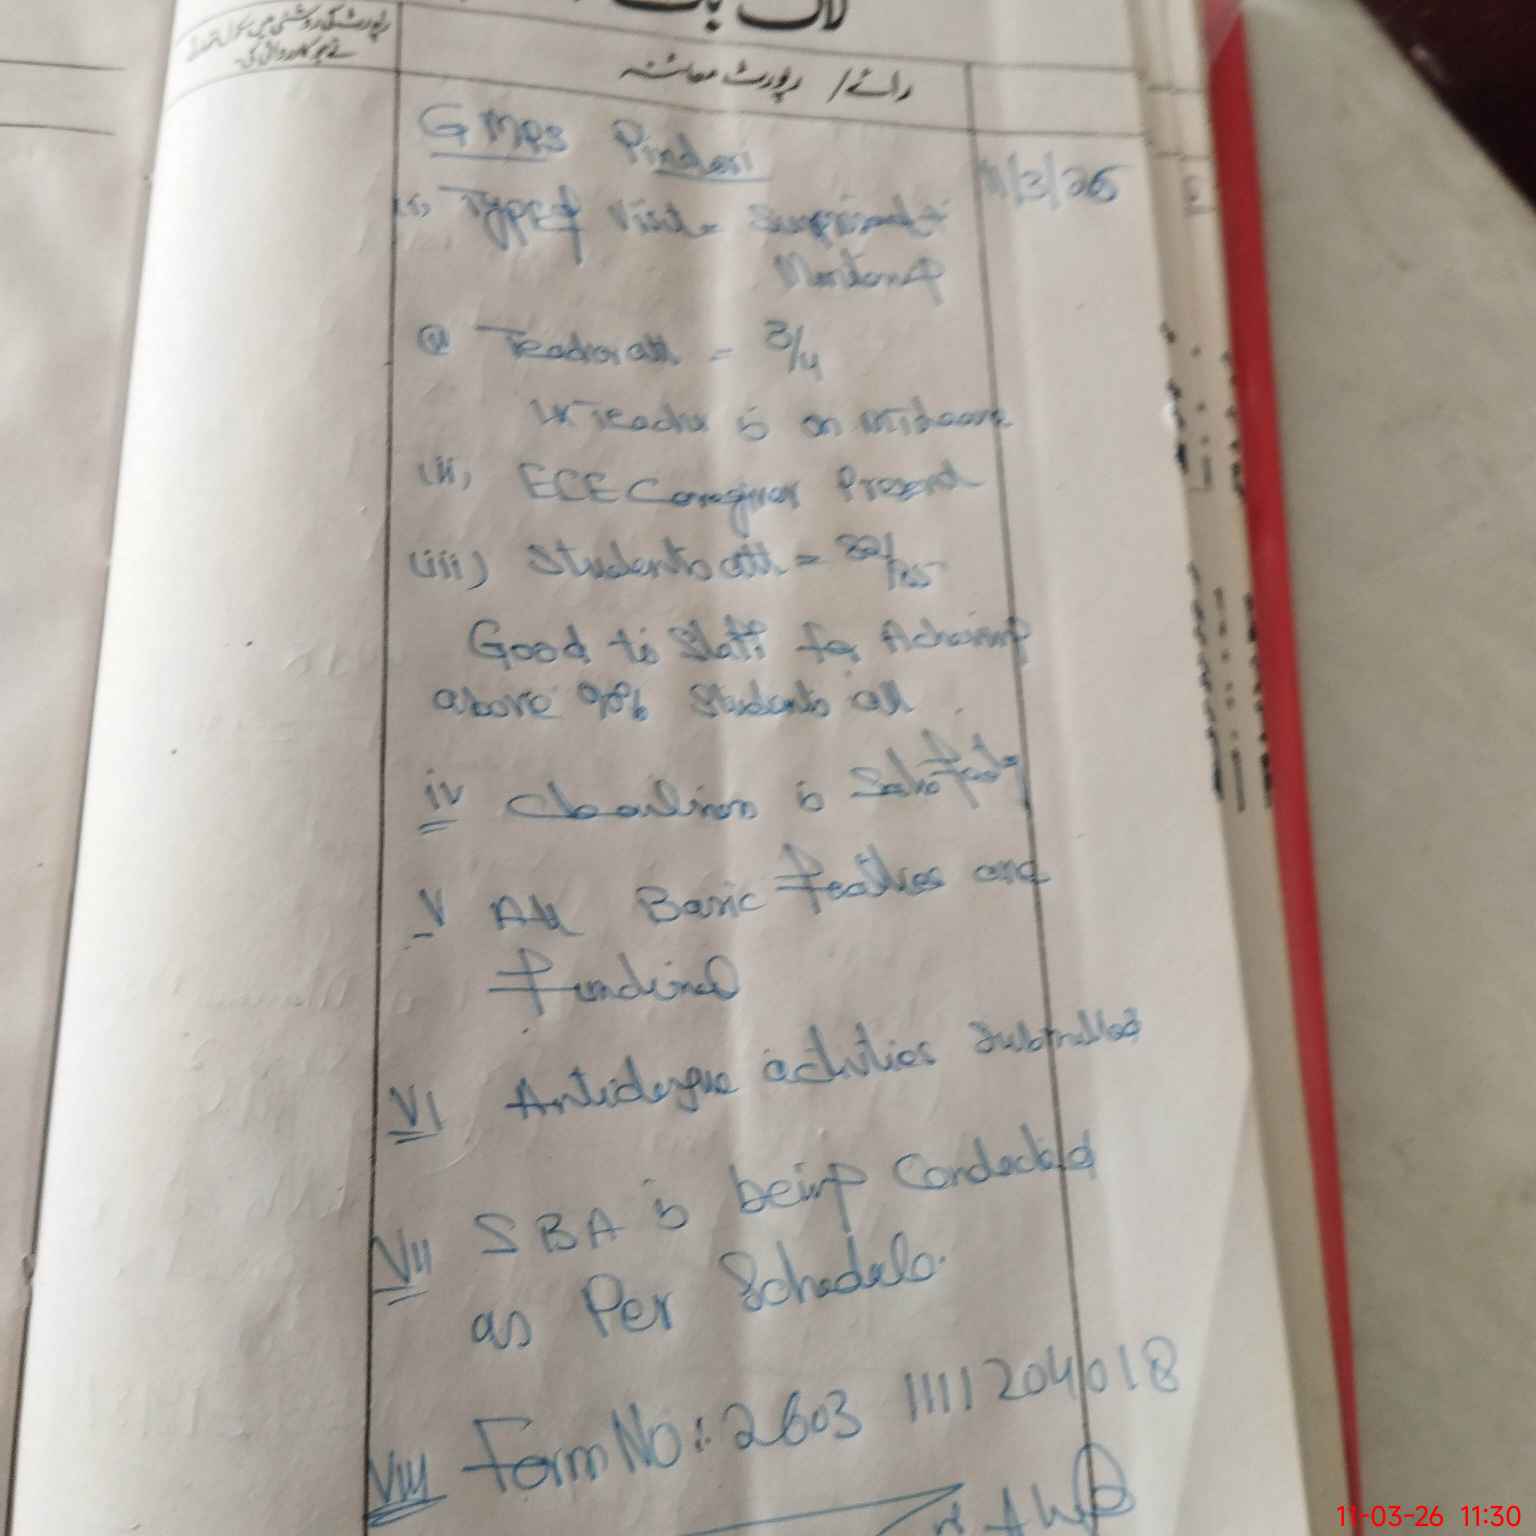 لاگ بک
رپورٹ کی روشنی میں سکول انتظامیہ
نے جو کارروائی کی۔
رائے / رپورٹ معائنہ
GMPS Pindori
11/3/26
(i) Type of Visit =
Teacher att = 3/4
Teacher is on
(ii) ECE Caregiver Present
(iii) Students att =
Good to Staff for Acheving
above 90% Students att
iv Cleanliness is Satisfactory
V All Basic Facilities and
Functional
VI Antidengue activities Submitted
VII SBA is being Conducted
as Per Schedule.
VIII Form No: 2603 1111204018
11-03-26 11:30